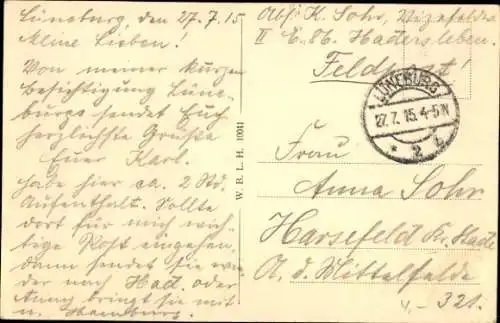 Lüneburg, den 27.7.15
Meine Lieben!
Von meiner kurzen
Besichtigung Lüne-
burgs sendet Euch
herzlichste Grüße
Euer Karl.
habe hier ca. 2 Std.
Aufenthalt. Sollte
dort für mich wich-
tige Post eingehen,
dann sendet sie wie-
der nach Had. oder
Anny bringt sie mit
n. Hamburg.
W. B. L. H. 10041
Abs: K. Sohr, Vizefeldw.
II E. 86. Hadersleben.
Feldpost!
LÜNEBURG
27.7.15.4-5N
* 2 *
Frau
Anna Sohr
Harsefeld Kr. Stade
A. d. Mittelfelde
321.